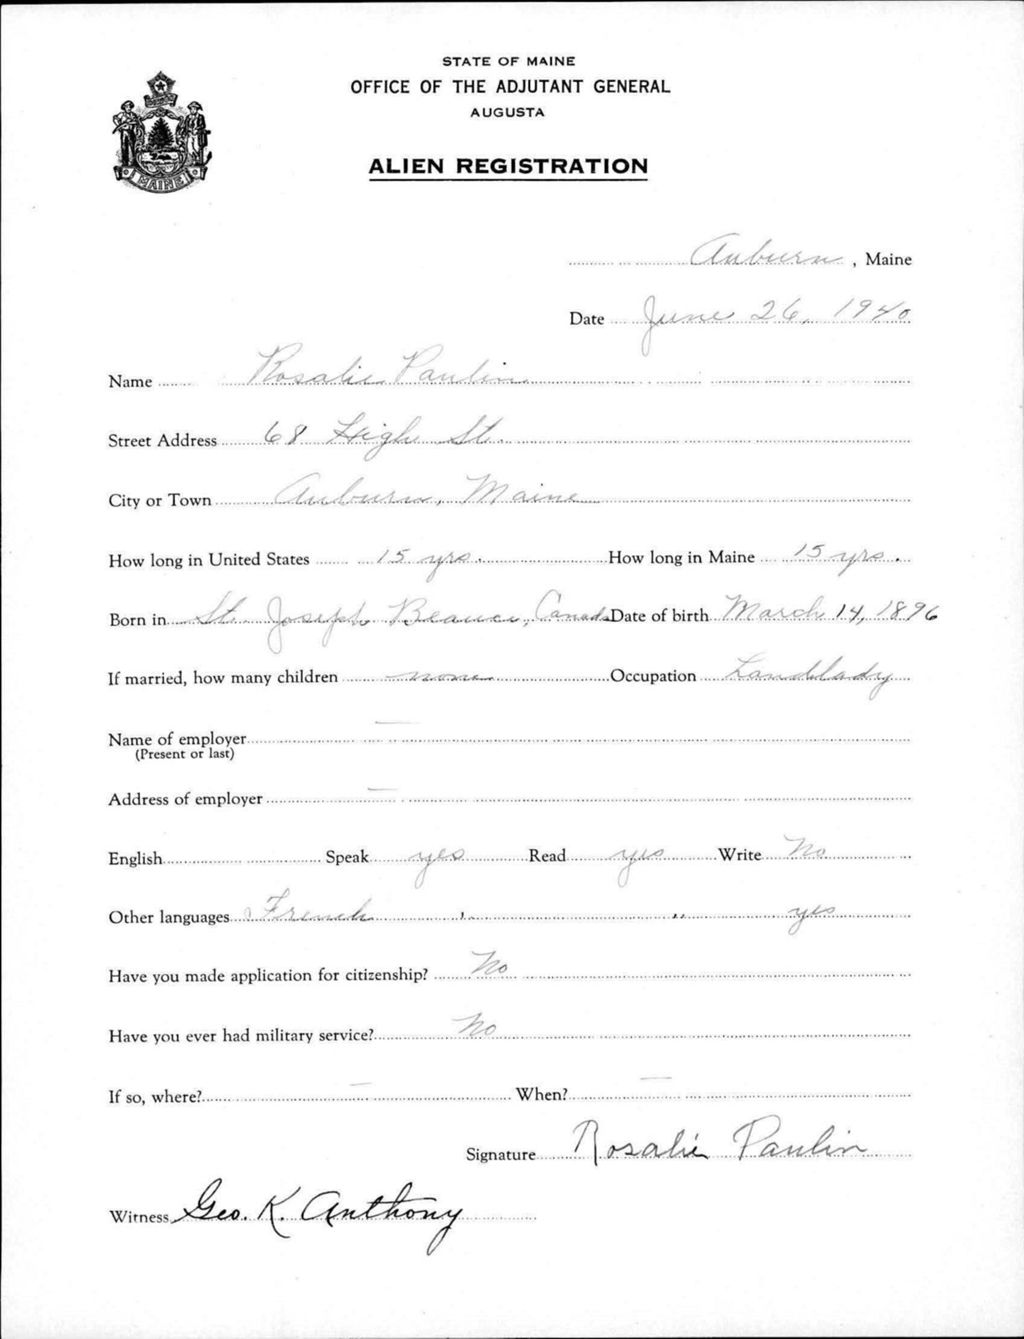 STATE OF MAINE
OFFICE OF THE ADJUTANT GENERAL
AUGUSTA
ALIEN REGISTRATION
MAINE
Auburn, Maine
Date June 26, 1940
Name Rosalie Paulin
Street Address 68 High St.
City or Town Auburn, Maine
How long in United States 15 yrs. How long in Maine 15 yrs.
Born in St. Joseph Beauce, Canada Date of birth March 14, 1896
If married, how many children none Occupation Landlady
Name of employer —
(Present or last)
Address of employer —
English Speak yes Read yes Write No
Other languages French " " yes
Have you made application for citizenship? No
Have you ever had military service? No
If so, where? — When? —
Signature Rosalie Paulin
Witness Geo. K. Anthony